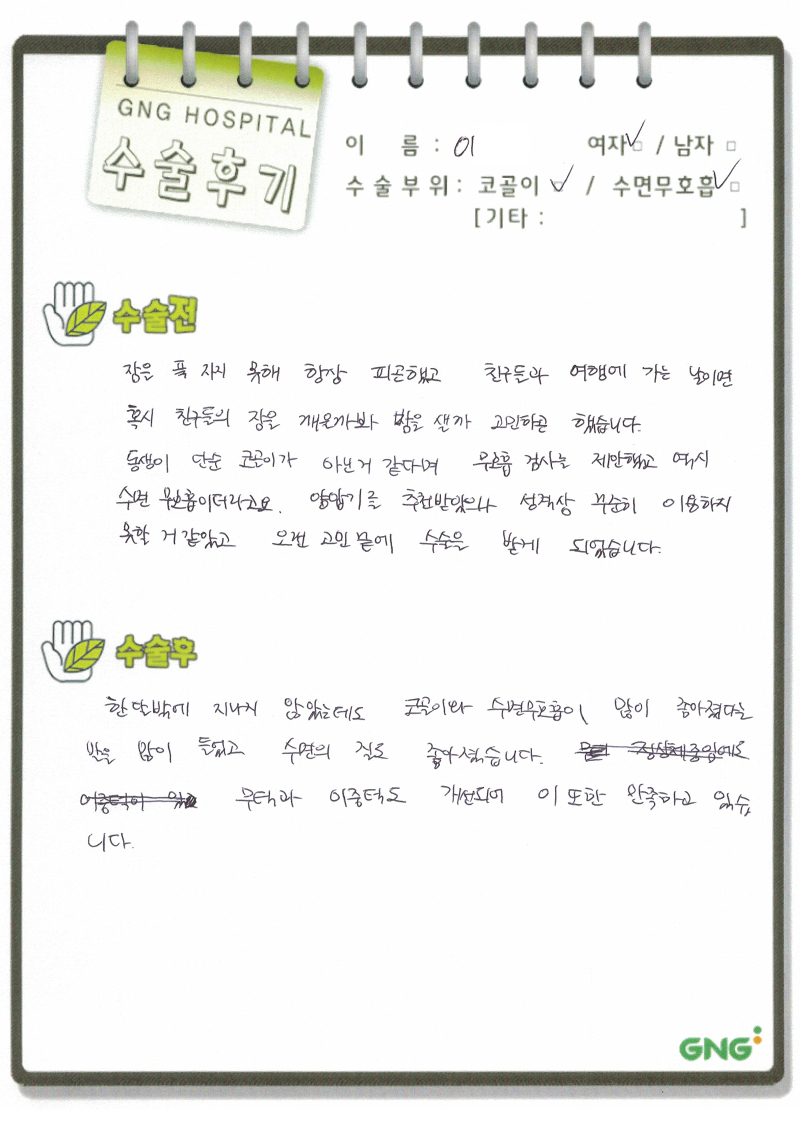 GNG HOSPITAL
수술후기
이 름 : 이
여자 / 남자
수술부위 : 코골이 / 수면무호흡
[기타 : ]
수술전
잠을 푹 자지 못해 항상 피곤했고 친구들과 여행에 가는 날이면
혹시 친구들의 잠을 깨울까봐 밤을 샐까 고민하곤 했습니다.
동생이 단순 코골이가 아닌거 같다며 무호흡 검사를 제안했고 역시
수면 무호흡이더라고요. 양압기를 추천받았으나 성격상 꾸준히 이용하지
못할 거 같았고 오랜 고민 끝에 수술을 받게 되었습니다.
수술후
한달밖에 지나지 않았는데도 코골이와 수면무호흡이 많이 좋아졌다는
말을 많이 들었고 수면의 질도 좋아졌습니다. 정상체중임에도
이중턱이 무턱과 이중턱도 개선되어 이 또한 만족하고 있습
니다.
GNG